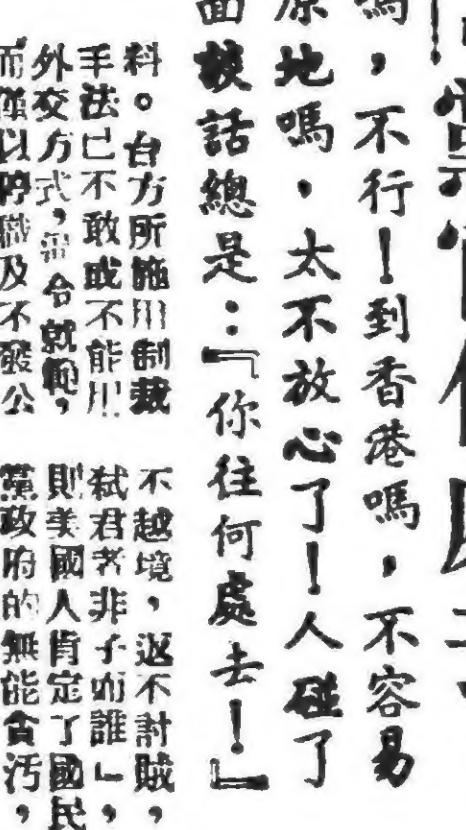 嗎，不行！到香港嗎，不容易
原地嗎，太不放心了！人碰了
面談話總是：『你往何處去！』
料。台方所施用制裁
手法已不敢或不能用
外交方式，令就範，
而僅以停職及不發公
不越境，返不討賊，
弒君者非子而誰」，
則美國人肯定了國民
黨政府的無能貪污，